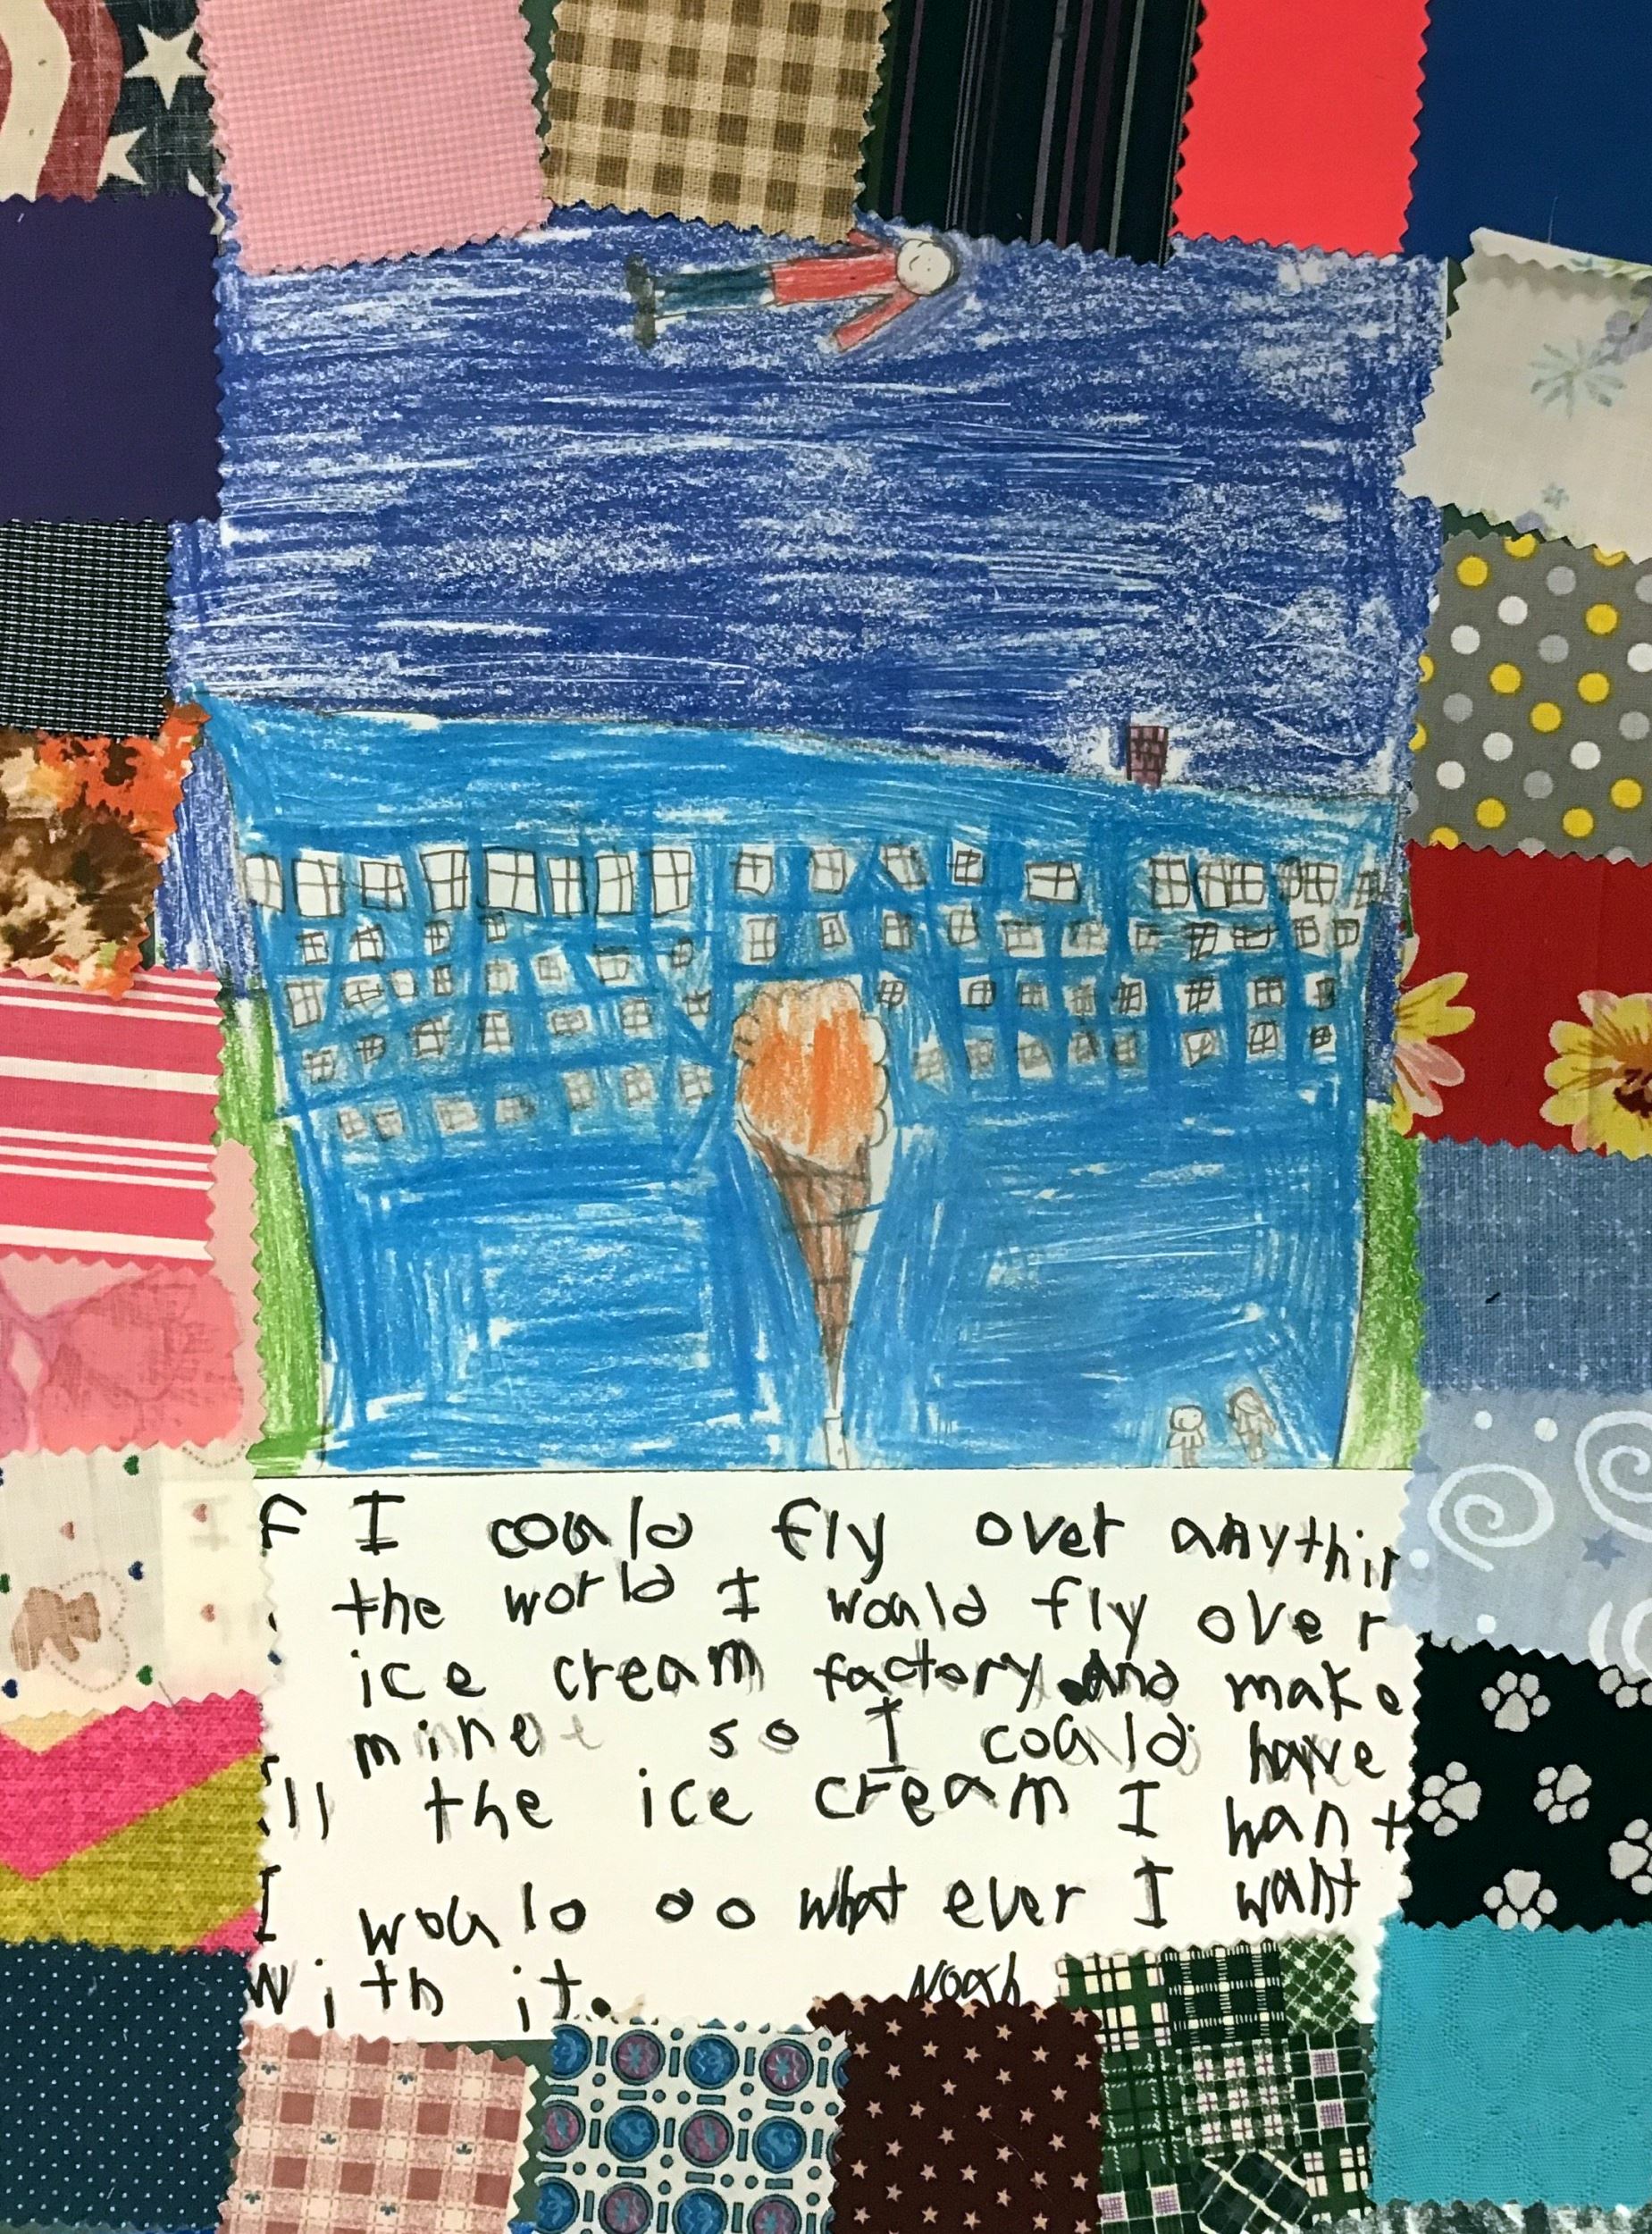 f I could fly over anythin
the world I would fly over
ice cream factory. And make
mine so I could have
ll the ice cream I want
I would do what ever I want
With it. Noah